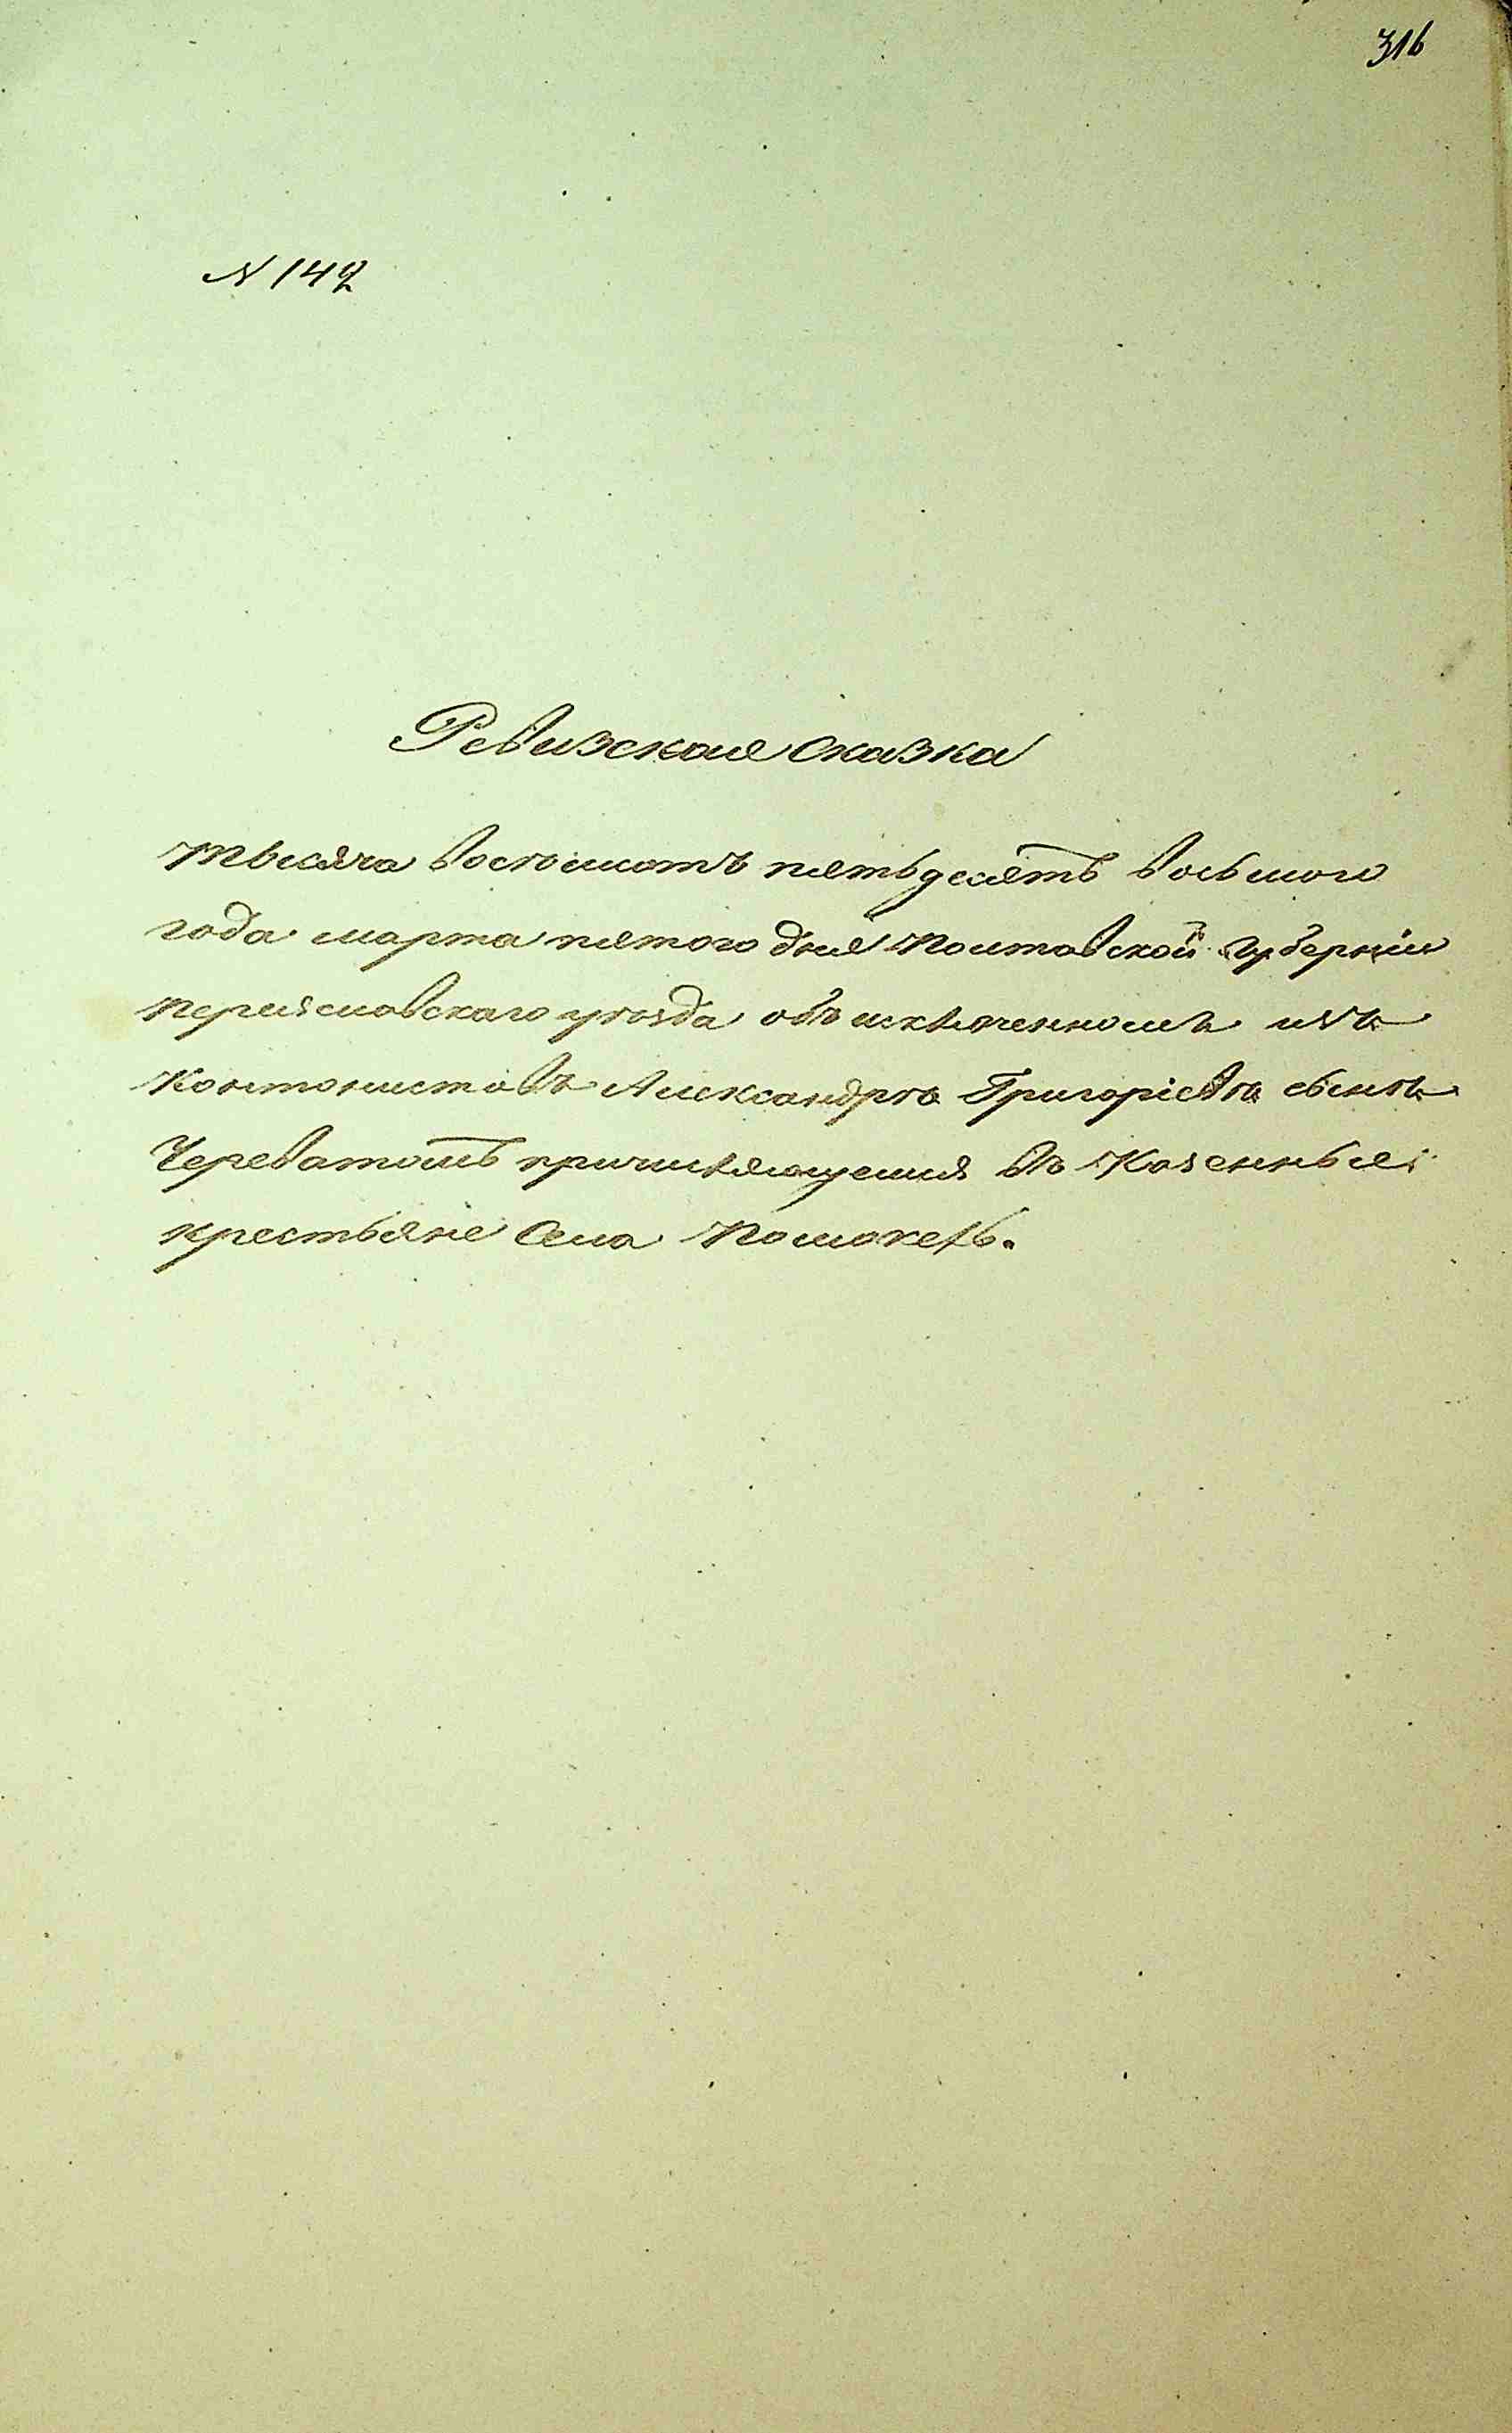 316
N 142
Ревизская сказка
Тысяча восемсотъ пятьдесятъ восьмого
года марта пятого дня Полтавской губерніи
Переясловскаго уѣзда объ исключенномъ изъ
Кантонистовъ Александрѣ Григоріевѣ сынѣ
Череватомъ причисляющемся въ Казенныя
крестьяне села Помокель.